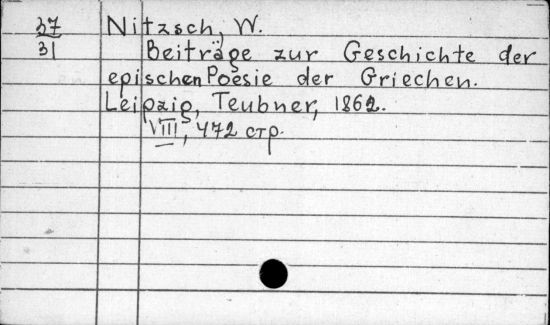 37 Nitzsch, W.
31 Beiträge zur Geschichte der
epischen Poesie der Griechen.
Leipzig, Teubner, 1862.
VIII, 472 стр.